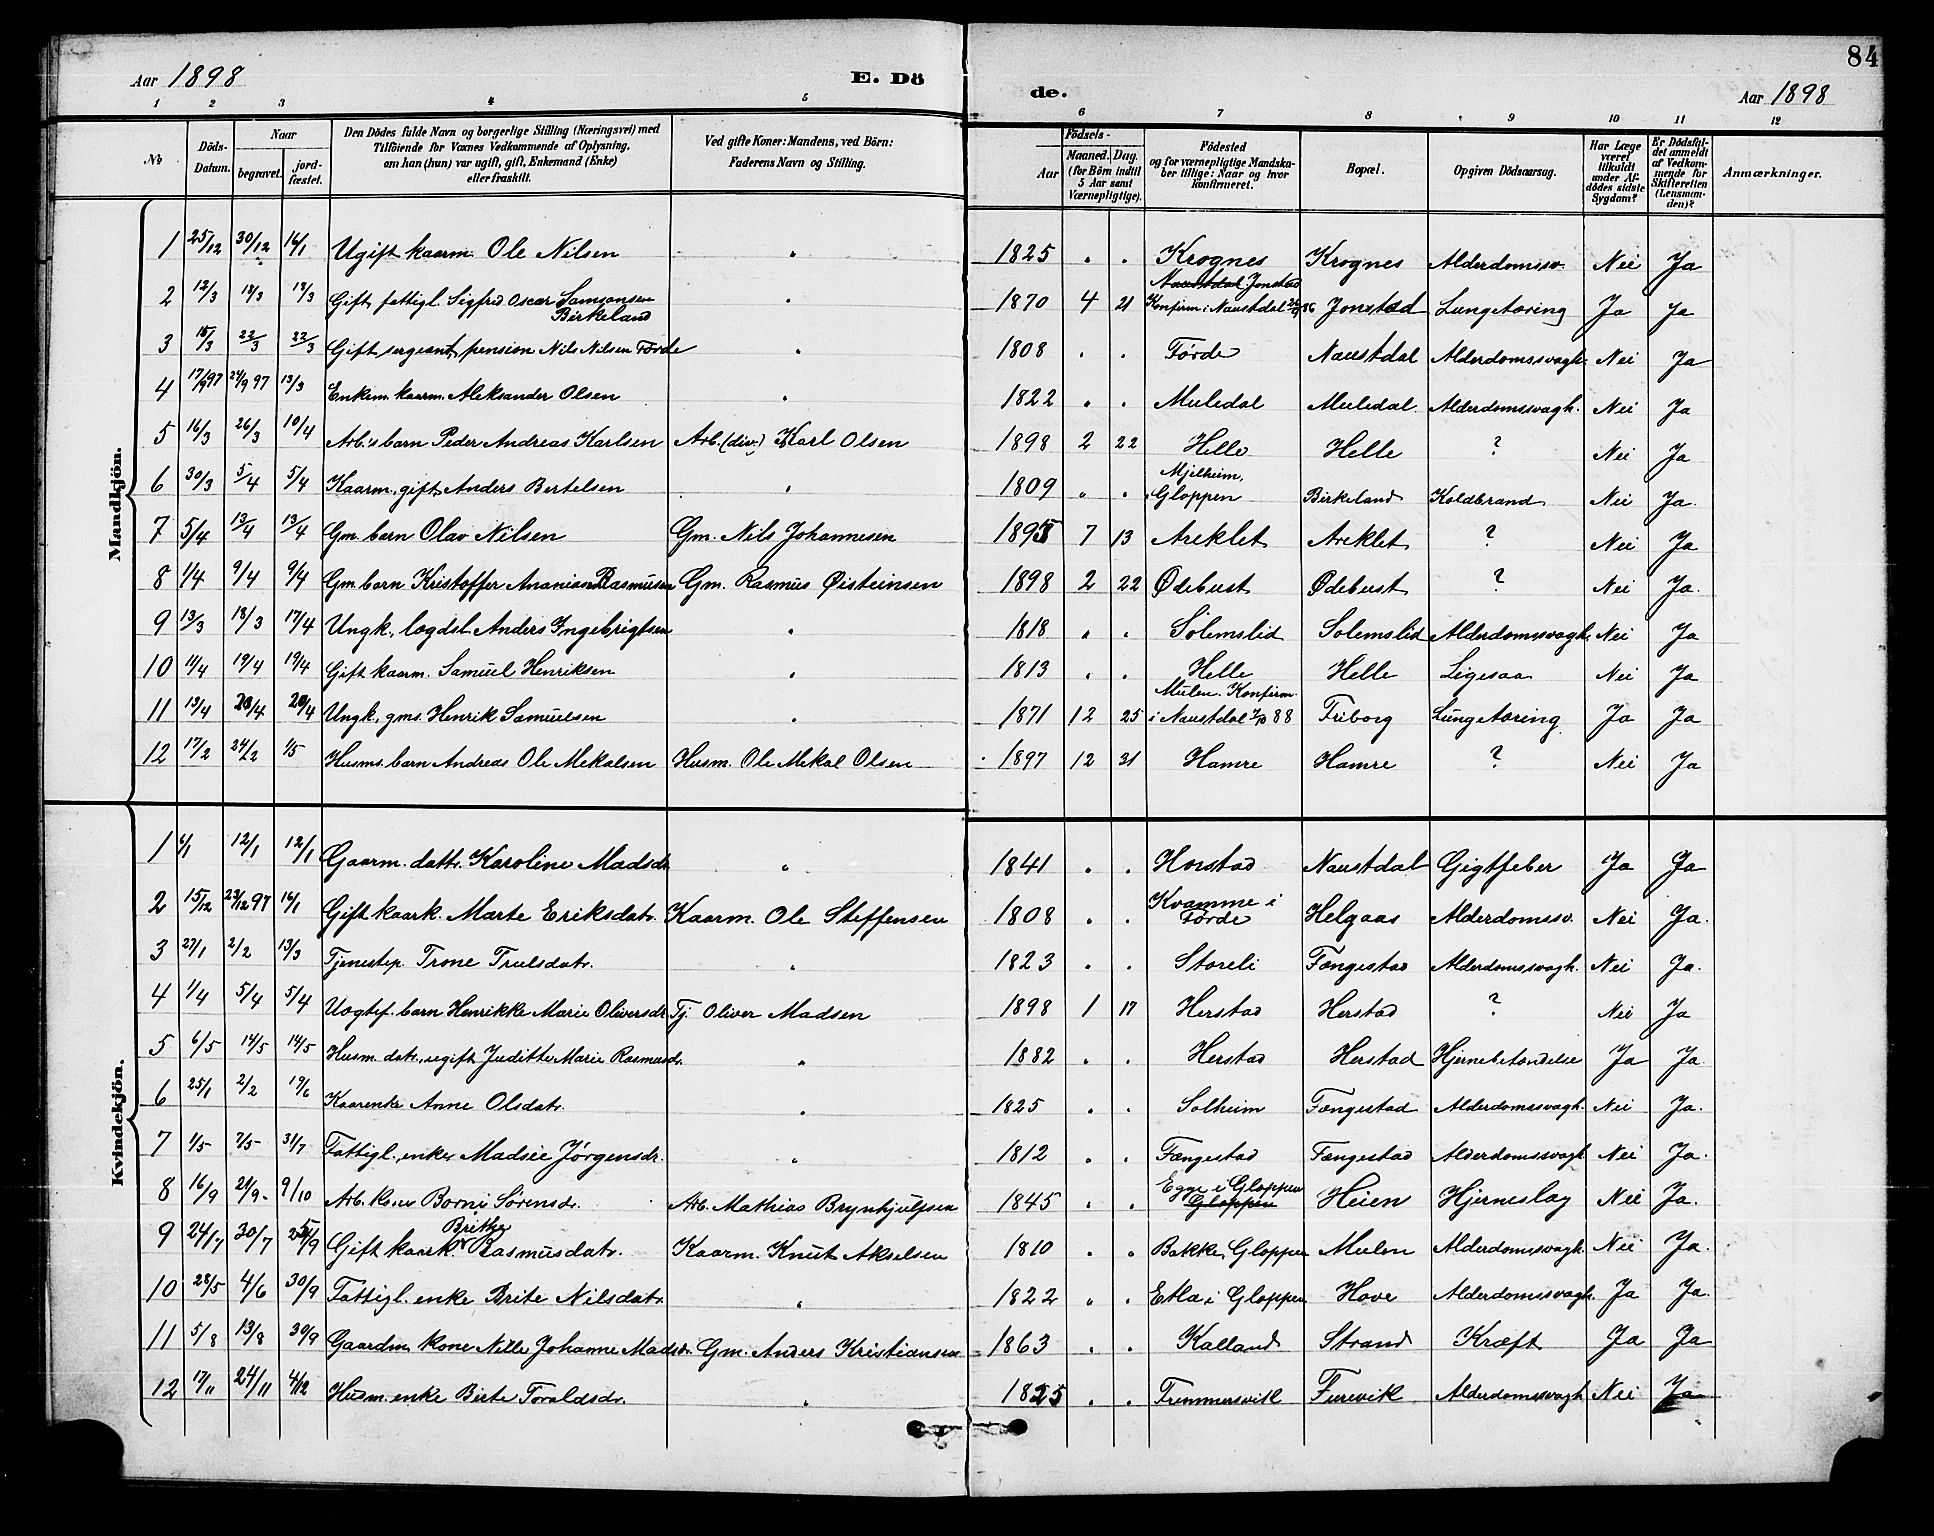 84
Aar 1898 E. Dö de. Aar 1898
1 2 3 4 5 6 7 8 9 10 11 12
No
Döds-Datum.
Naar
begravet.
jordfæstet.
Den Dödes fulde Navn og borgerlige Stilling (Næringsvei) med
Tilföiende for Voxnes Vedkommende af Oplysning,
om han (hun) var ugift, gift, Enkemand (Enke)
eller fraskilt.
Ved gifte Koner: Mandens, ved Börn:
Faderens Navn og Stilling.
Födsels-
Aar
Maaned. Dag.
(for Börn indtil
5 Aar samt
Værnepligtige).
Födested
og for værnepligtige Mandska-
ber tillige: Naar og hvor
konfirmeret.
Bopæl.
Opgiven Dödsaarsag.
Har Læge
været
tilkaldt
under Af-
dödes sidste
Sygdom?
Er Dödsfal-
det anmeldt
af Vedkom-
mende for
Skifteretten
(Lensman-
den)?
Anmærkninger.
Mandkjön.
1 25/12 30/12 16/1 Ugift kaarm. Ole Nilsen " 1825 " " Krognes Krognes Alderdomssv. Nei Ja
2 12/3 18/3 18/3 Gift, fattigl. Sigfred Oscar Samsonsen Birkeland " 1870 4 21 Naustdal Jonstad Konfirm. i Naustdal 86 Jonstad Lungetæring Ja Ja
3 15/3 22/3 22/3 Gift, sergeant, pension Nils Nilsen Førde " 1808 " " Førde Naustdal Alderdomssvagh. Nei Ja
4 17/9 97 24/9 97 13/3 Enkem. kaarm. Aleksander Olsen " 1822 " " Muledal Muledal Alderdomssvagh. Nei Ja
5 16/3 26/3 10/4 Arb.s barn Peder Andreas Karlsen Arb. (div.) Karl Olsen 1898 2 22 Helle Helle ? Nei Ja
6 30/3 5/4 5/4 Kaarm., gift Anders Bertelsen " 1809 " " Mjelheim, Gloppen Birkeland Koldbrand Nei Ja.
7 5/4 13/4 13/4 Gm. barn Olav Nilsen Gm. Nils Johannesen 1895 7 13 Areklet Areklet ? Nei Ja
8 1/4 9/4 9/4 Gm. barn Kristoffer Ananias Rasmusen Gm. Rasmus Øisteinsen 1898 2 22 Ødebust Ødebust ? Nei Ja.
9 13/3 18/3 17/4 Ungk., lægdsl. Anders Ingebrigtsen " 1818 " " Solemslid Solemslid Alderdomssvagh. Nei Ja
10 11/4 19/4 19/4 Gift kaarm. Samuel Henriksen " 1813 " " Helle Helle Ligesaa Nei Ja
11 13/4 20/4 20/4 Ungk., gms. Henrik Samuelsen " 1871 12 25 Mulen. Konfirm. i Naustdal 88 Friborg Lungetæring Ja Ja
12 17/2 24/2 1/5 Husms. barn Andreas Ole Mekalsen Husm. Ole Mekal Olsen 1897 12 31 Hamre Hamre ? Nei Ja
Kvindekjön.
1 6/1 12/1 12/1 Gaarm. dattr. Karoline Madsdr. " 1841 " " Horstad Naustdal Gigtfeber Ja Ja
2 15/12 23/12 97 16/1 Gift kaark. Marte Eriksdatr. Kaarm. Ole Steffensen 1808 " " Kvamme i Førde Helgaas Alderdomssv. Nei Ja.
3 27/1 2/2 13/3 Tjenestep. Trone Truelsdatr. " 1823 " " Storeli Fængestad Alderdomssvagh. Nei Ja.
4 1/4 5/4 5/4 Uægtef. barn Henrikke Marie Oliversdr. Tj. Oliver Madsen 1898 1 17 Herstad Herstad ? Nei Ja
5 6/5 14/5 14/5 Husm. datr., ugift Juditte Marie Rasmusdr. " 1882 " " Herstad Herstad Hjernebetændelse Ja Ja
6 25/1 2/2 19/6 Kaarenke Anne Olsdatr. " 1825 " " Solheim Fængestad Alderdomssvagh. Nei Ja.
7 1/5 7/5 31/7 Fattigl., enke Madsie Jørgensdr. " 1812 " " Fængestad Fængestad Alderdomssvagh. Nei Ja.
8 16/9 21/9 9/10 Arb. kone Borni Sørensdr. Arb. Mathias Brynhjulfsen 1845 " " Egge i Gloppen Gloppen Heien Hjerneslag Nei Ja.
9 24/7 30/7 25/9 Gift kaark. Brithe Rasmusdatr. Kaarm. Knut Akselsen 1810 " " Bakke, Gloppen Mulen Alderdomssvagh. Nei Ja.
10 28/5 4/6 30/9 Fattigl. enke Brite Nilsdatr. " 1822 " " Etla i Gloppen Hove Alderdomssvagh. Ja Ja.
11 5/8 13/8 30/9 Gaardm. kone Nille Johanne Madsdr. Gm. Anders Kristiansen 1863 " " Kalland Strand Kræft Ja Ja
12 17/11 24/11 4/12 Husm. enke Birte Toraldsdr. " 1825 " " Tremmersvik Furevik Alderdomssvagh. Nei Ja